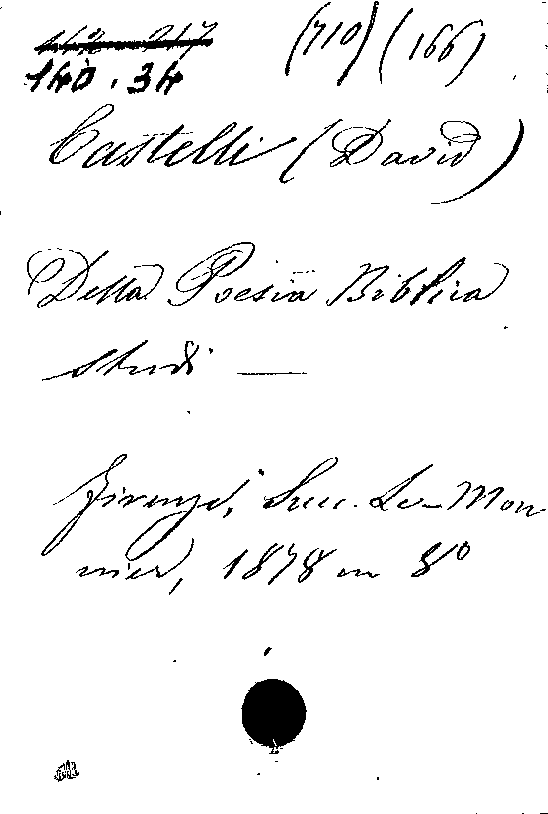 (710) (166)
140.34
Castelli (David)
Della Poesia Biblica
studi —
Firenze, Succ. Le-Mon
nier, 1878 in 8º